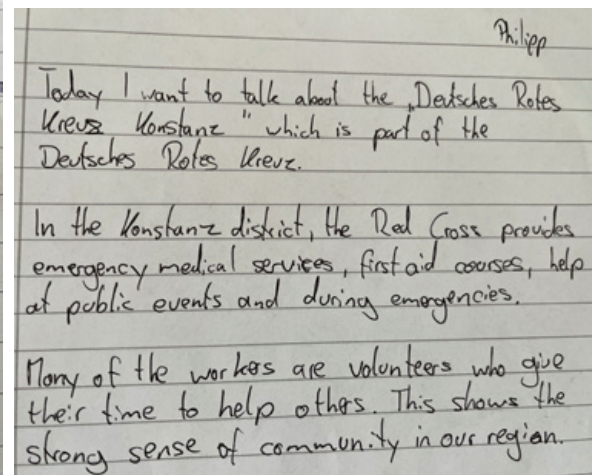 Philipp
Today I want to talk about the „Deutsches Rotes
Kreuz Konstanz" which is part of the
Deutsches Rotes Kreuz.
In the Konstanz district, the Red Cross provides
emergency medical services, first aid courses, help
at public events and during emergencies.
Many of the workers are volunteers who give
their time to help others. This shows the
strong sense of community in our region.